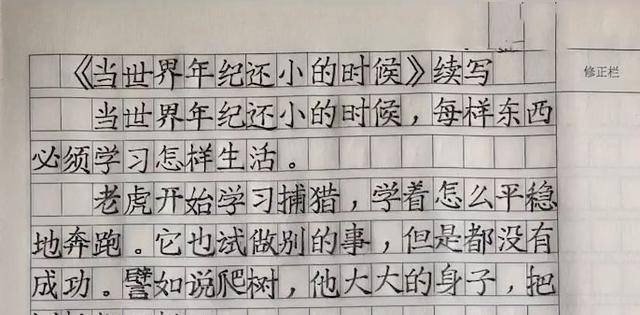 《当世界年纪还小的时候》续写
修正栏
当世界年纪还小的时候，每样东西
必须学习怎样生活。
老虎开始学习捕猎，学着怎么平稳
地奔跑。它也试做别的事，但是都没有
成功。譬如说爬树，他大大的身子，把